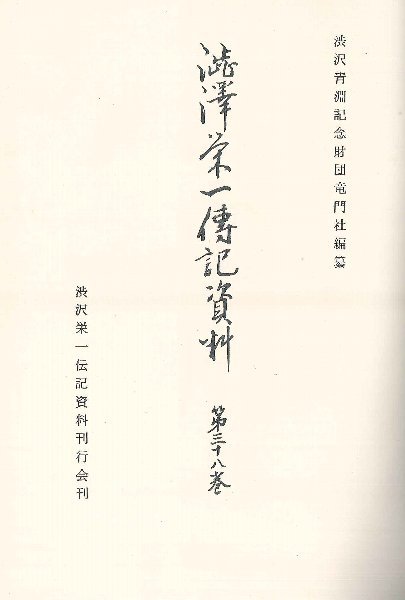 渋沢青淵記念財団竜門社編纂
澁澤栄一傳記資料
第三十八巻
渋沢栄一伝記資料刊行会刊